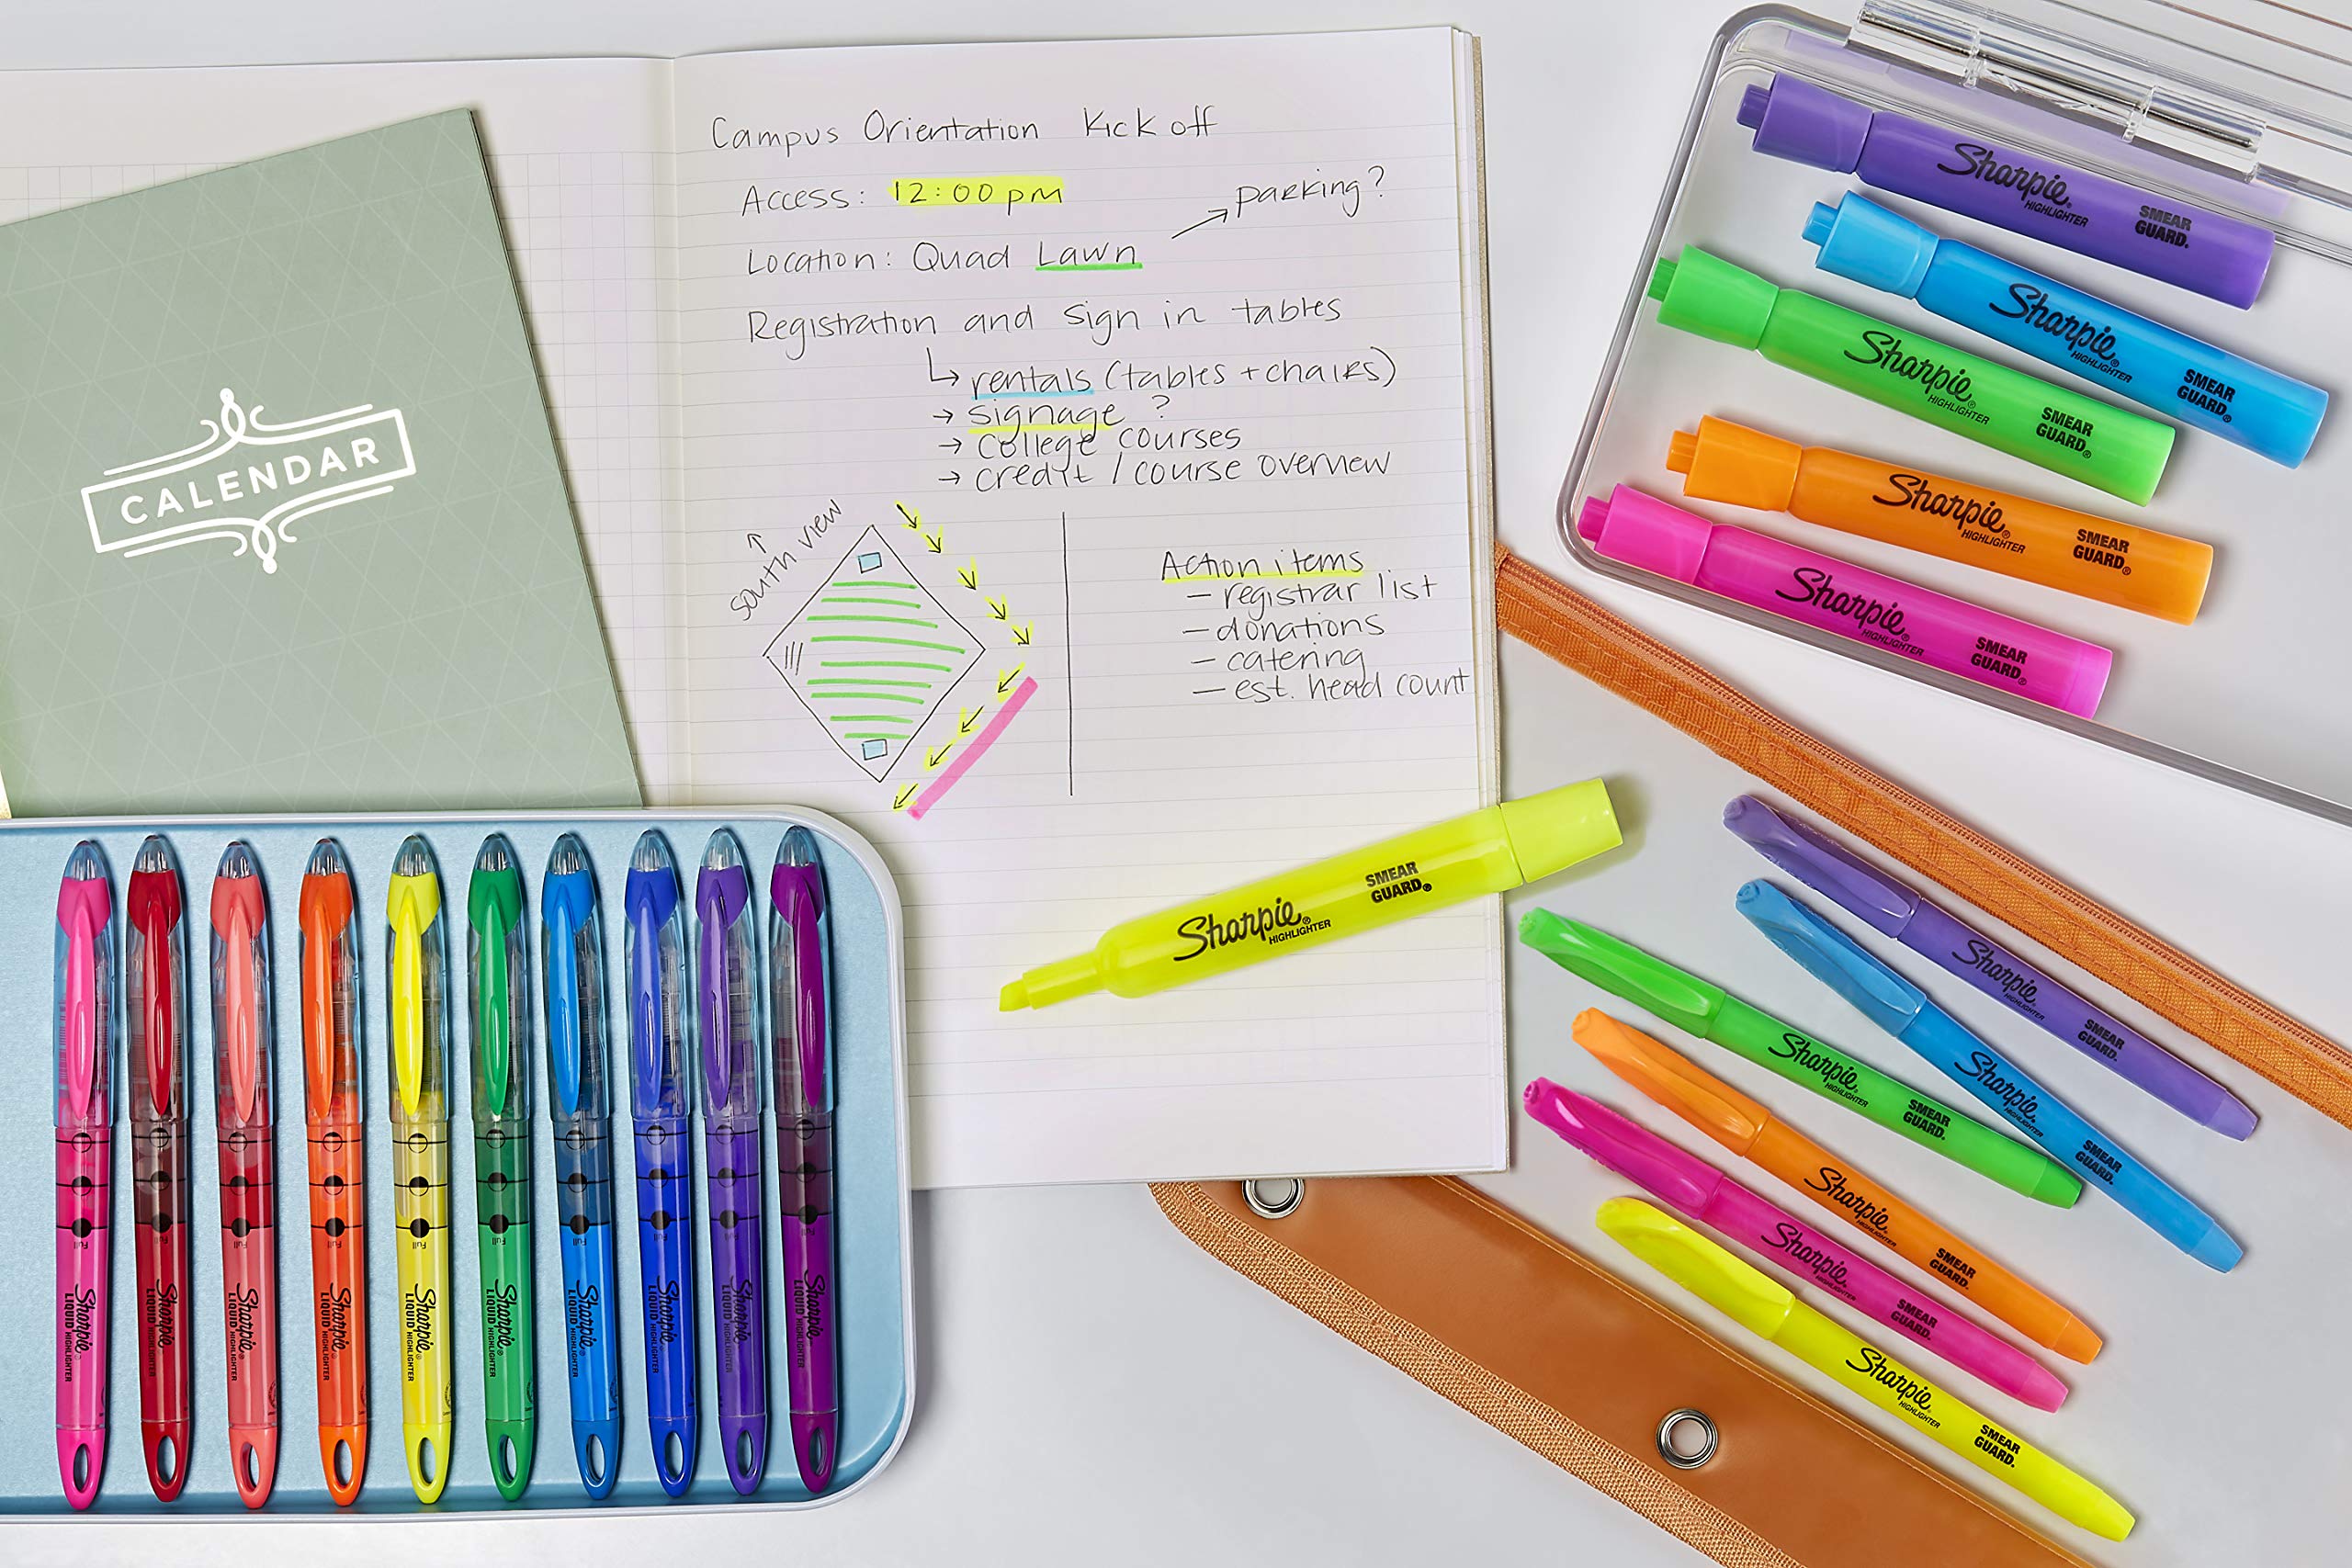 Campus Orientation Kick off
Access: 12:00 pm
parking?
Location: Quad Lawn
Registration and sign in tables
↳ rentals (tables + chairs)
→ signage ?
→ College courses
→ credit / course overview
south view
Action items
— registrar list
— donations
— catering
— est. head count
CALENDAR
Sharpie® HIGHLIGHTER SMEAR GUARD®
Sharpie® HIGHLIGHTER SMEAR GUARD®
Sharpie® HIGHLIGHTER SMEAR GUARD®
Sharpie® HIGHLIGHTER SMEAR GUARD®
Sharpie® HIGHLIGHTER SMEAR GUARD®
Sharpie® HIGHLIGHTER SMEAR GUARD®
Sharpie HIGHLIGHTER SMEAR GUARD
Sharpie HIGHLIGHTER SMEAR GUARD
Sharpie HIGHLIGHTER SMEAR GUARD
Sharpie HIGHLIGHTER SMEAR GUARD
Sharpie HIGHLIGHTER SMEAR GUARD
Sharpie HIGHLIGHTER SMEAR GUARD
Sharpie LIQUID HIGHLIGHTER
Sharpie LIQUID HIGHLIGHTER Full
Sharpie LIQUID HIGHLIGHTER Full
Sharpie LIQUID HIGHLIGHTER Full
Sharpie LIQUID HIGHLIGHTER Full
Sharpie LIQUID HIGHLIGHTER Full
Sharpie LIQUID HIGHLIGHTER Full
Sharpie LIQUID HIGHLIGHTER Full
Sharpie LIQUID HIGHLIGHTER Full
Sharpie LIQUID HIGHLIGHTER Full